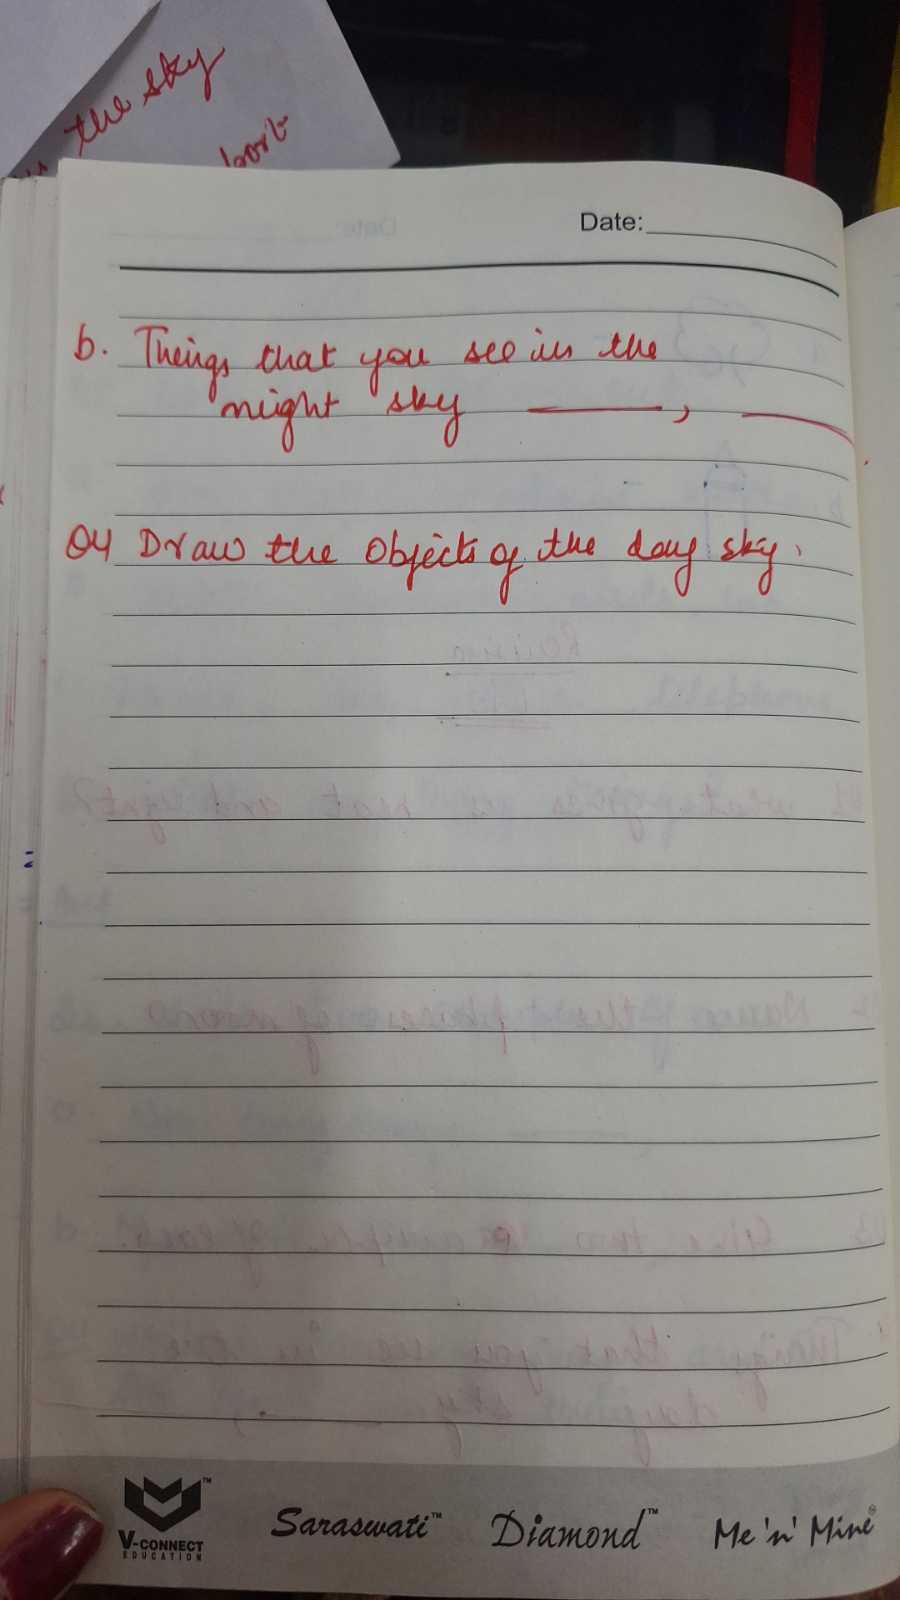 the sky
Date:
b. Things that you see in the
night sky ______, ______
Q4 Draw the Objects of the day sky.
V-CONNECT
EDUCATION
Saraswati™ Diamond™ Me 'n' Mine®